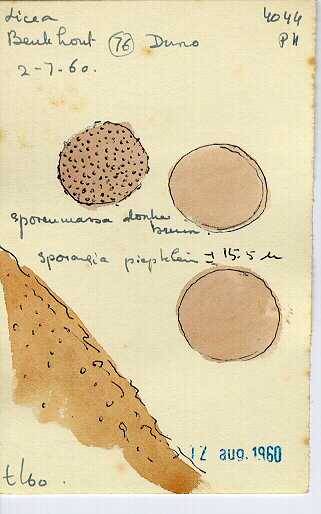 Licea 4044
Beukhout (76) Duno PH
2-7-60.
sporenmassa donker
bruin.
sporangia piepklein ± 15.5 µ
12 aug. 1960
t/60.